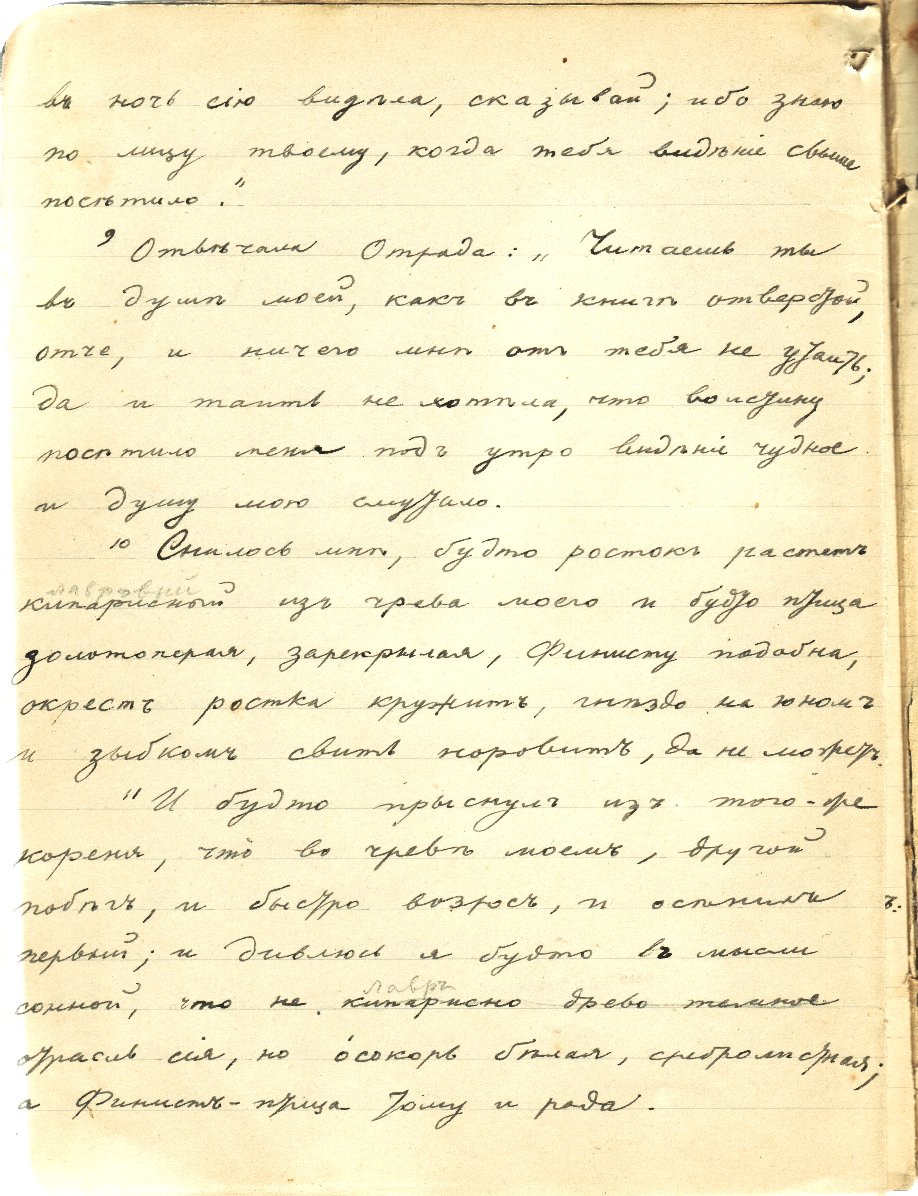 въ ночь сію видѣла, сказывай; ибо знаю
по лицу твоему, когда тебя видѣніе свыше
посѣтило."
⁹ Отвѣчала Отрада: „Читаешь ты
въ душѣ моей, какъ въ книгѣ отверстой,
отче, и ничего мнѣ отъ тебя не утаить;
да и таить не хотѣла, что воистину
посѣтило меня подъ утро видѣніе чудное
и душу мою смутило.
¹⁰ Снилось мнѣ, будто ростокъ растетъ
лавровый
кипарисный изъ чрева моего и будто птица
золотоперая, зарекрылая, Финисту подобна,
окрестъ ростка кружитъ, гнѣздо на юномъ
и зыбкомъ свить норовитъ, да не можетъ.
¹¹ И будто прыснулъ изъ того-же
кореня, что во чревѣ моемъ, другой
побѣгъ, и быстро возросъ, и осѣнилъ
первый; и дивлюсь я будто въ мысли
сонной, что не кипарисно древо темное
лавръ
отрасль сія, но о́сокорь бѣлая, сребролистная;
а Финистъ-птица тому и рада.
ъ: